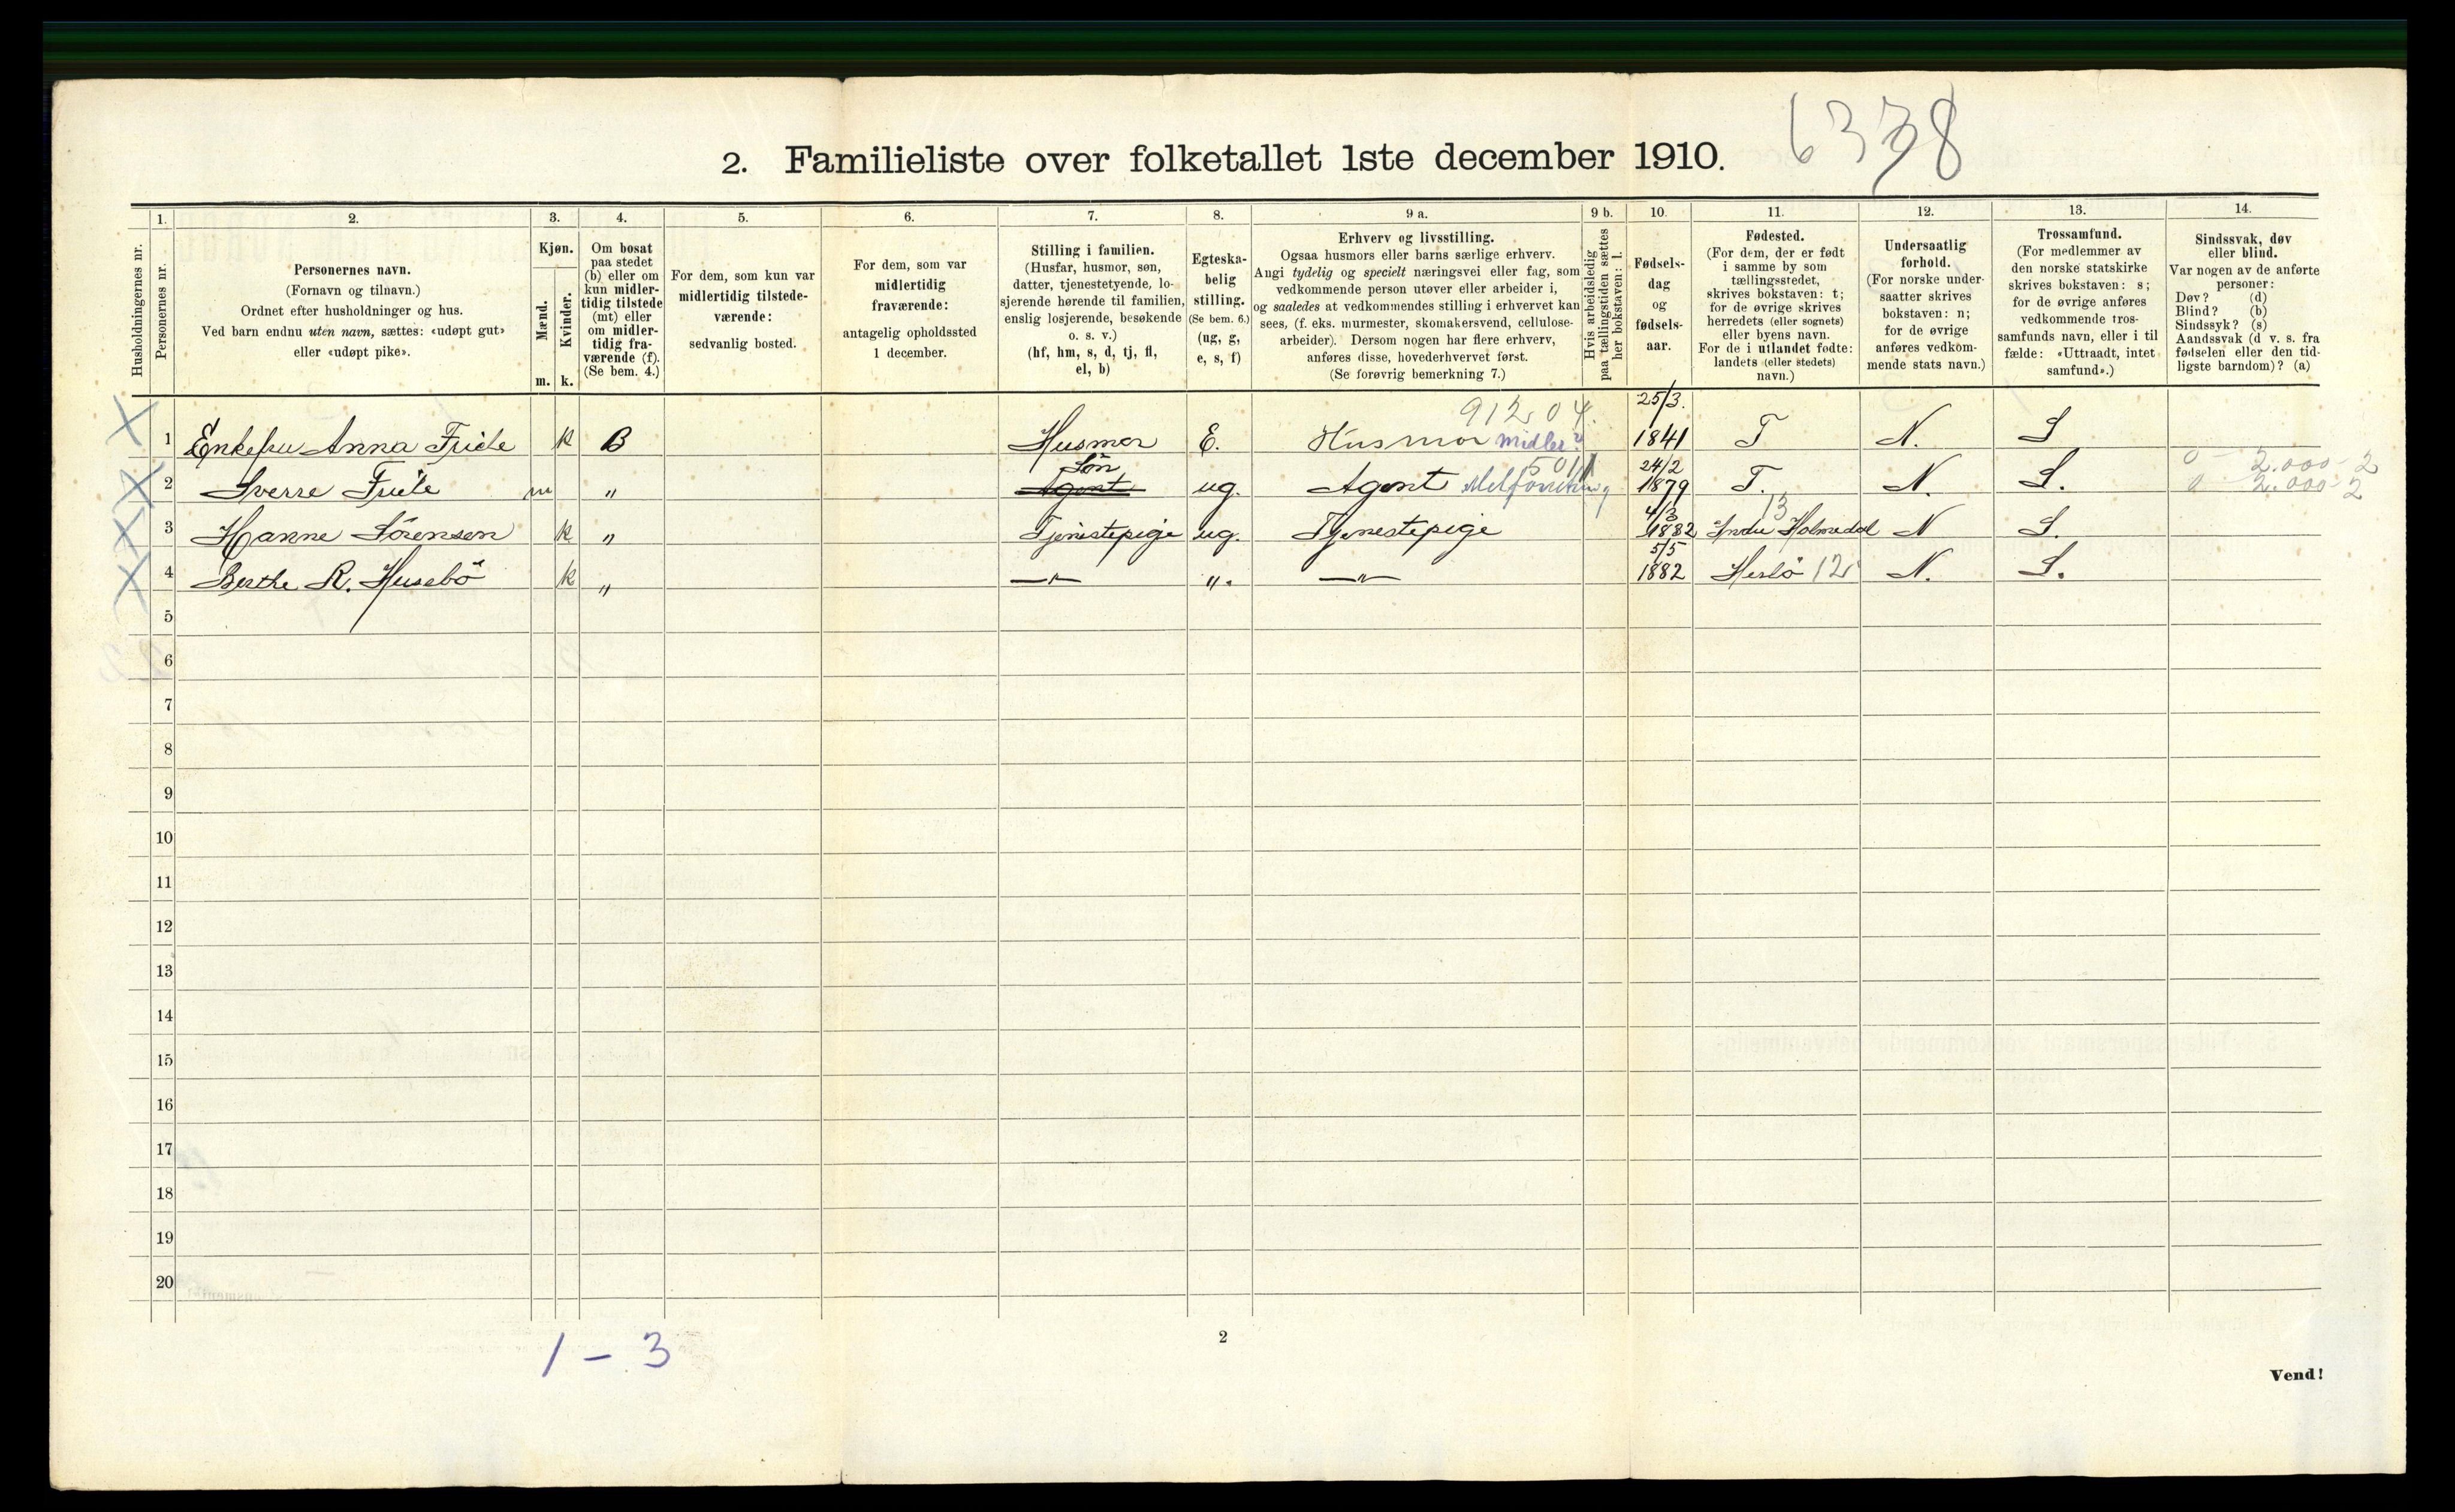 6338
2. Familieliste over folketallet 1ste december 1910.
Husholdningernes nr.
1.
Personernes nr.
2.
Personernes navn.
(Fornavn og tilnavn.)
Ordnet efter husholdninger og hus.
Ved barn endnu uten navn, sættes: «udøpt gut»
eller «udøpt pike».
3.
Kjøn.
Mænd.
Kvinder.
m. k.
4.
Om bosat
paa stedet
(b) eller om
kun midler-
tidig tilstede
(mt) eller
om midler-
tidig fra-
værende (f).
(Se bem. 4.)
5.
For dem, som kun var
midlertidig tilstede-
værende:
sedvanlig bosted.
6.
For dem, som var
midlertidig
fraværende:
antagelig opholdssted
1 december.
7.
Stilling i familien.
(Husfar, husmor, søn,
datter, tjenestetyende, lo-
sjerende hørende til familien,
enslig losjerende, besøkende
o. s. v.)
(hf, hm, s, d, tj, fl,
el, b)
8.
Egteska-
belig
stilling.
(Se bem. 6.)
(ug, g,
e, s, f)
9 a.
Erhverv og livsstilling.
Ogsaa husmors eller barns særlige erhverv.
Angi tydelig og specielt næringsvei eller fag, som
vedkommende person utøver eller arbeider i,
og saaledes at vedkommendes stilling i erhvervet kan
sees, (f. eks. murmester, skomakersvend, cellulose-
arbeider). Dersom nogen har flere erhverv,
anføres disse, hovederhvervet først.
(Se forøvrig bemerkning 7.)
9 b.
Hvis arbeidsledig
paa tællingstiden sættes
her bokstaven: l.
10.
Fødsels-
dag
og
fødsels-
aar.
11.
Fødested.
(For dem, der er født
i samme by som
tællingsstedet,
skrives bokstaven: t;
for de øvrige skrives
herredets (eller sognets)
eller byens navn.
For de i utlandet fødte:
landets (eller stedets)
navn.)
12.
Undersaatlig
forhold.
(For norske under-
saatter skrives
bokstaven: n;
for de øvrige
anføres vedkom-
mende stats navn.)
13.
Trossamfund.
(For medlemmer av
den norske statskirke
skrives bokstaven: s;
for de øvrige anføres
vedkommende tros-
samfunds navn, eller i til
fælde: «Uttraadt, intet
samfund».)
14.
Sindssvak, døv
eller blind.
Var nogen av de anførte
personer:
Døv? (d)
Blind? (b)
Sindssyk? (s)
Aandssvak (d v. s. fra
fødselen eller den tid-
ligste barndom)? (a)
912.04. 25/3.
X 1 Enkefru Anna Friele k B Husmor E. Husmor midler? 1841 T N. S
Søn 501 24/2 0 - 2.000 - 2
X 2 Sverre Friele m " Agent ug. Agent 1879 T. N. S. 0 2.000 - 2
4/3 13
X 3 Hanne Sörensen k " Tjenistepige ug. Tjenestepige 1882 Indre Holmedal N S.
5/5
X 4 Berthe R. Husebö k " —"— ". —"— 1882 Herlö 12 N. S.
5
6
7
8
9
10
11
12
13
14
15
16
17
18
19
20
1 - 3
2
Vend!